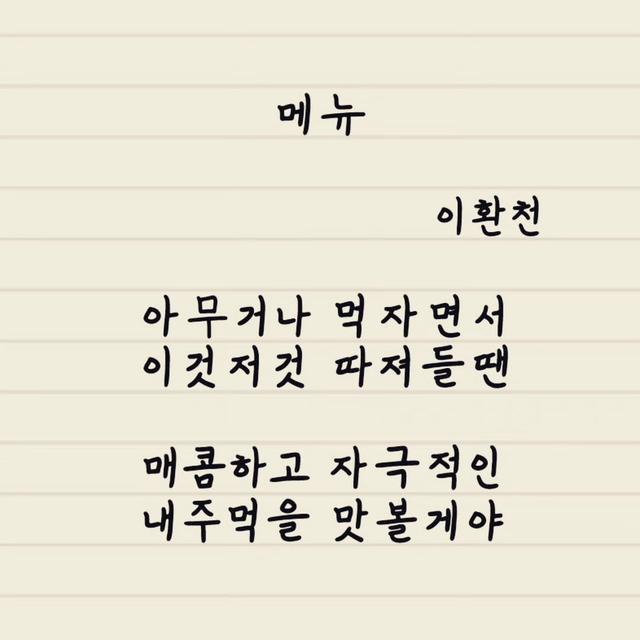 메뉴
이환천
아무거나 먹자면서
이것저것 따져들땐
매콤하고 자극적인
내주먹을 맛볼게야